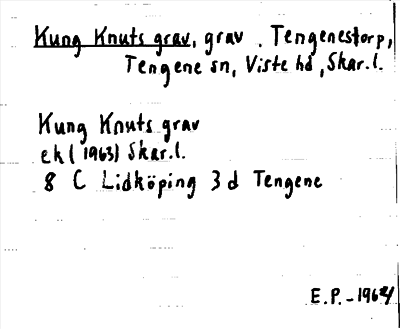 Kung Knuts grav, grav . Tengenestorp,
Tengene sn, Viste hd, Skar.l.
Kung Knuts grav
ek (1963) Skar.l.
8 C Lidköping 3 d Tengene
E.P. - 1964